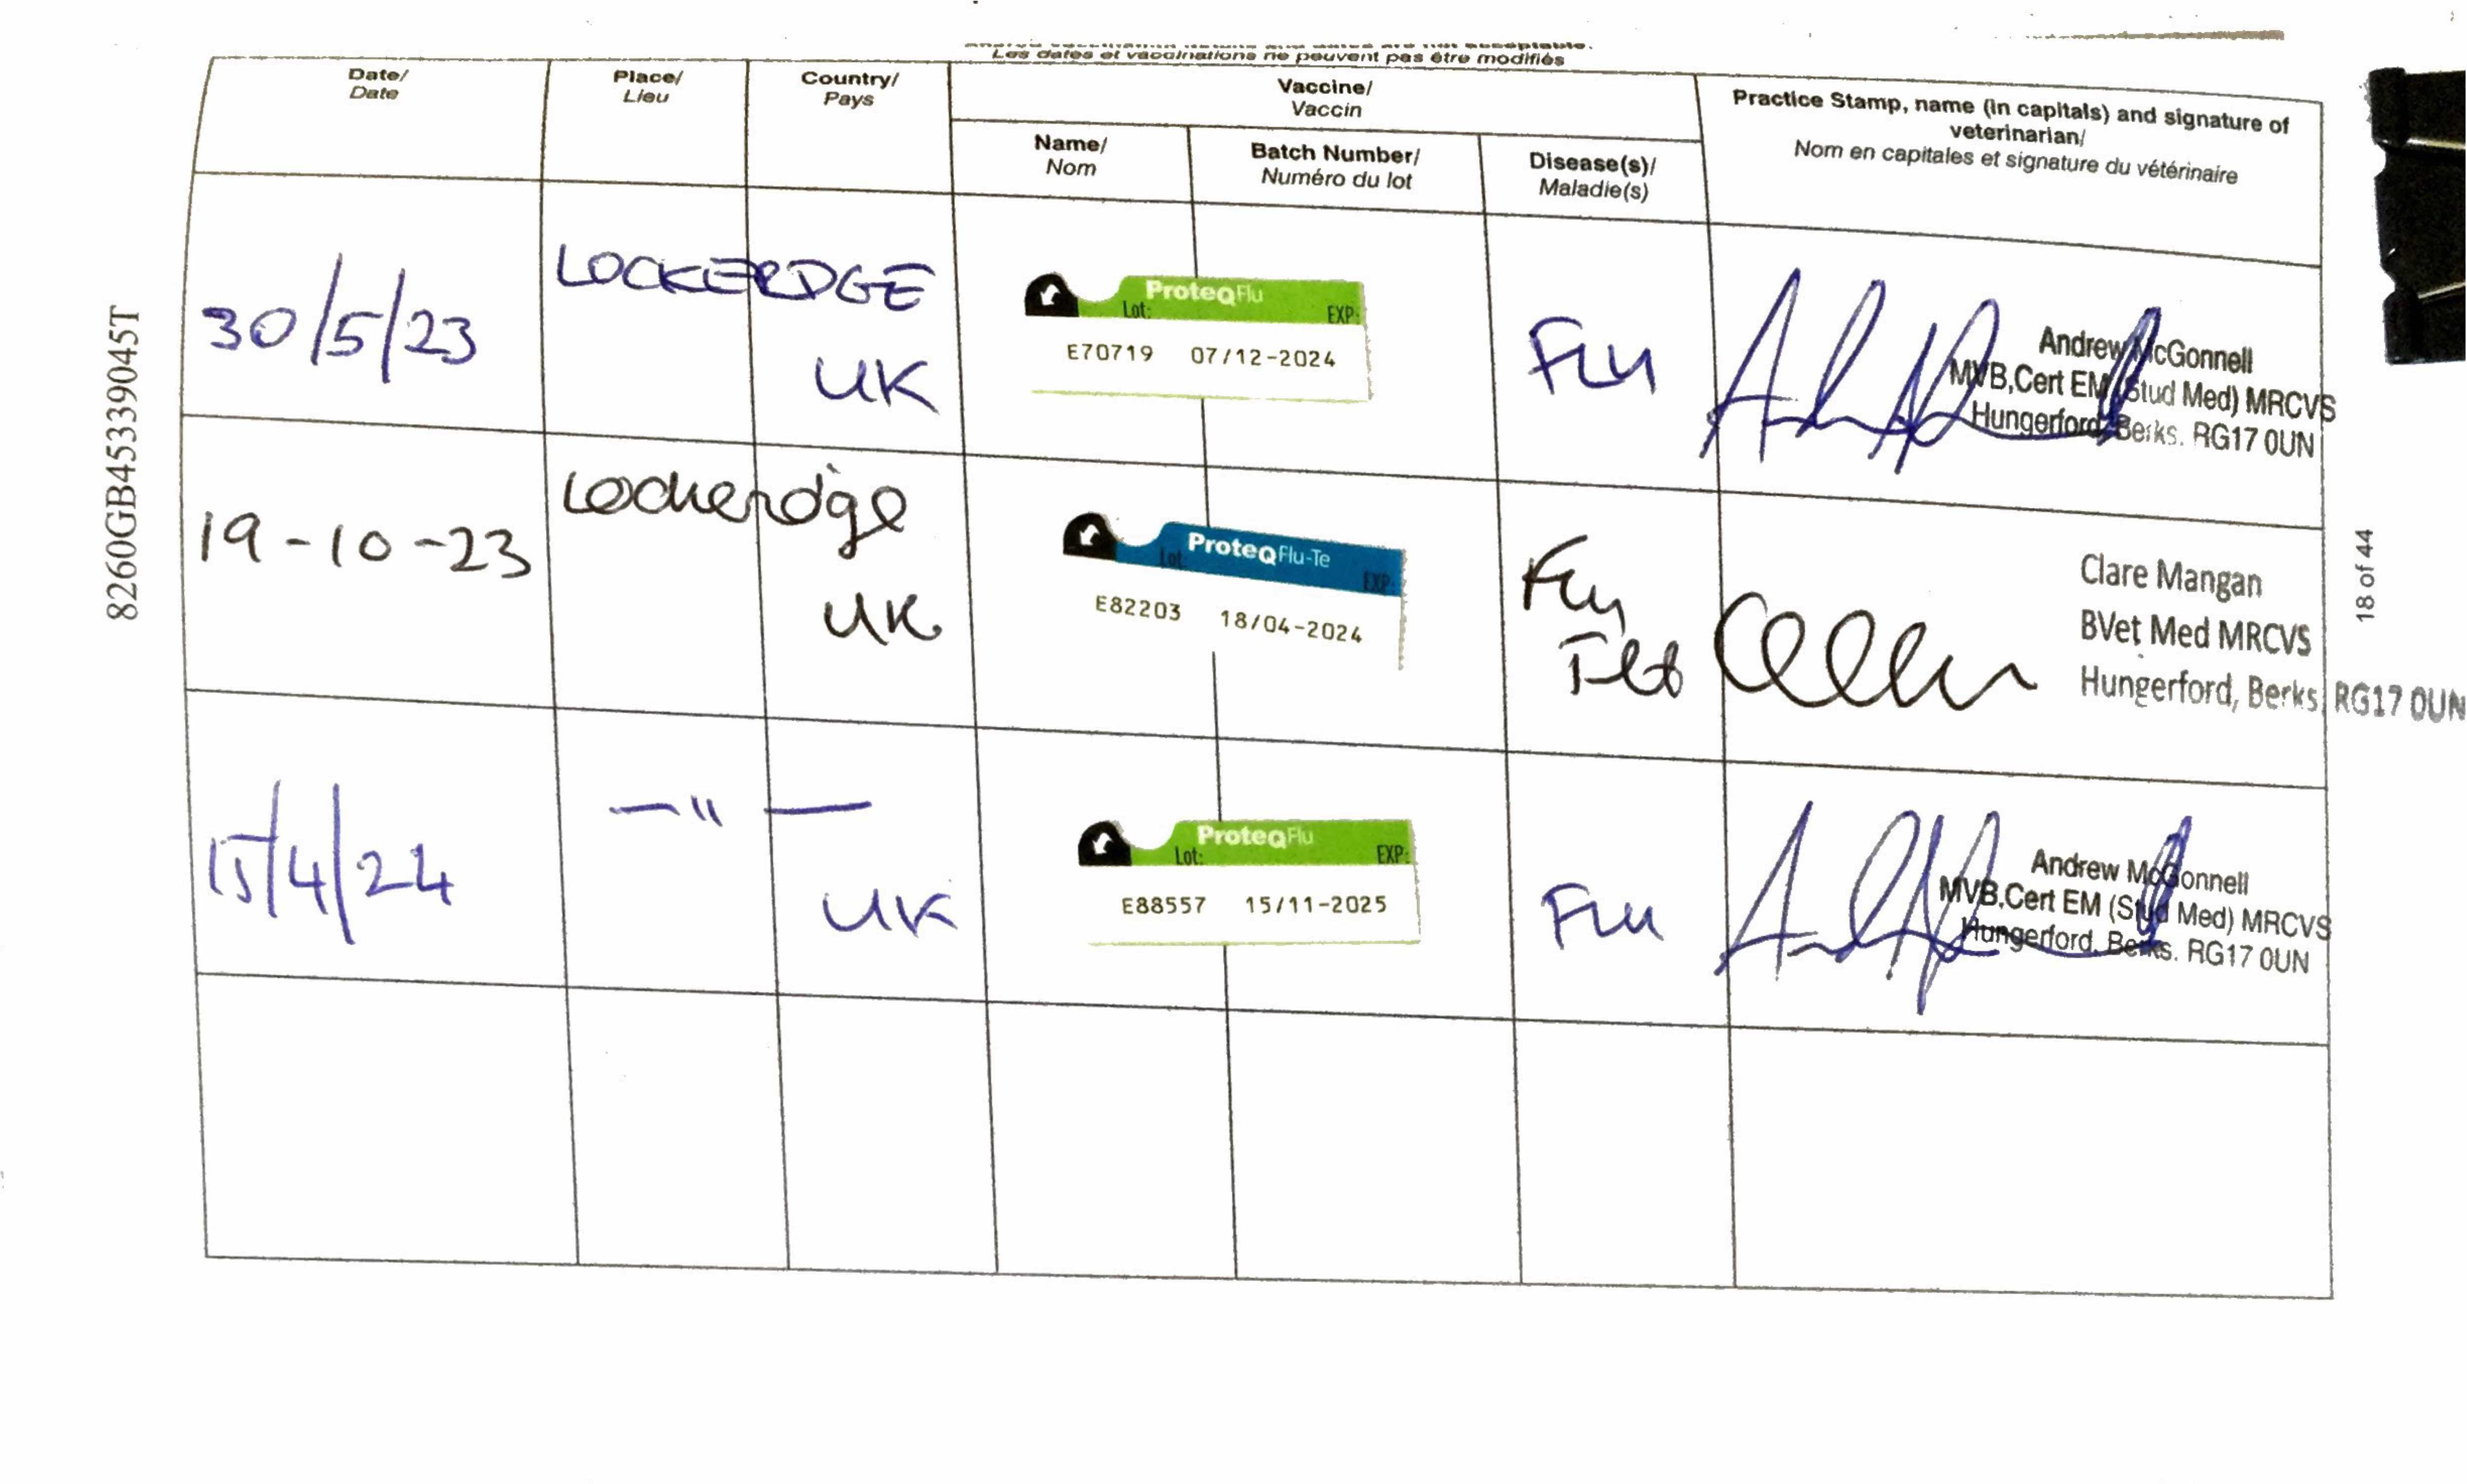 Les dates et vaccinations ne peuvent pas être modifiés
Date/
Date
Place/
Lieu
Country/
Pays
Vaccine/
Vaccin
Name/
Nom
Batch Number/
Numéro du lot
Disease(s)/
Maladie(s)
Practice Stamp, name (in capitals) and signature of
veterinarian/
Nom en capitales et signature du vétérinaire
30/5/23
LOCKERDGE
UK
ProteqFlu
Lot: EXP:
E70719 07/12-2024
FLU
Andrew McGonnell
MVB,Cert EM (Stud Med) MRCVS
Hungerford, Berks. RG17 0UN
19-10-23
Lockeridge
UK
ProteqFlu-Te
Lot: EXP:
E82203 18/04-2024
Flu
Tet
Clare Mangan
BVet Med MRCVS
Hungerford, Berks, RG17 0UN
15/4/24
—"—
UK
ProteqFlu
Lot: EXP:
E88557 15/11-2025
Flu
Andrew McGonnell
MVB,Cert EM (Stud Med) MRCVS
Hungerford, Berks. RG17 0UN
8260GB45339045T
18 of 44